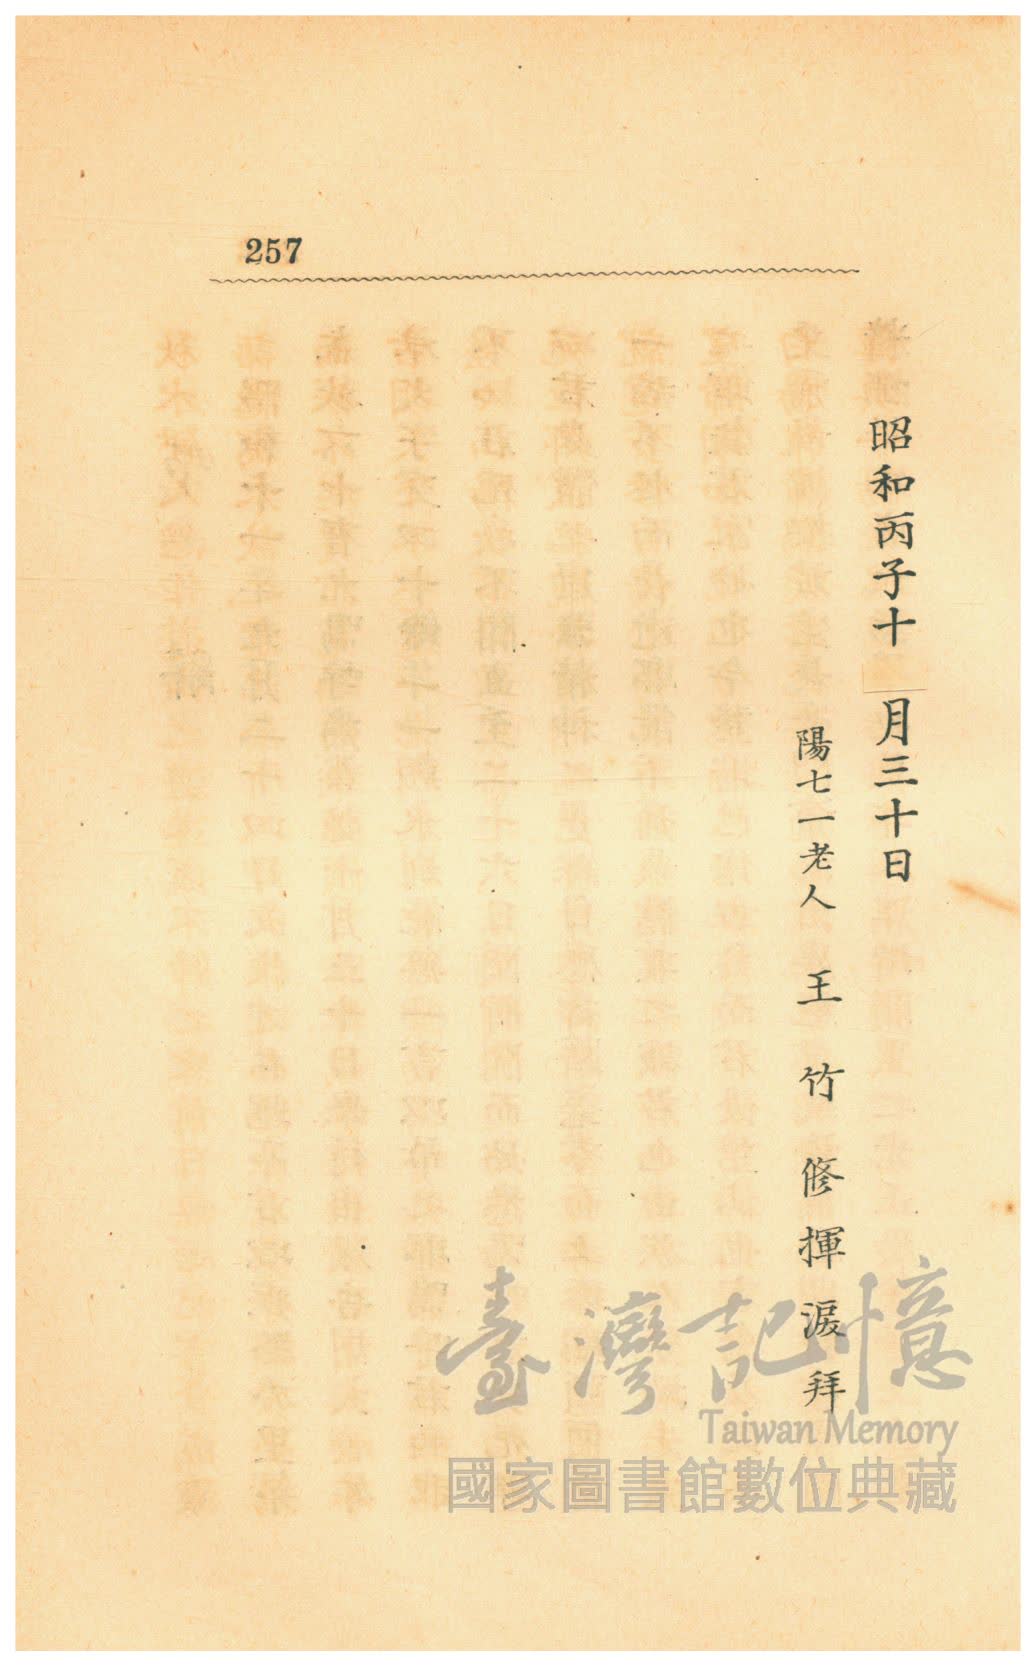 257
昭和丙子十 月三十日
陽七一老人 王竹修揮淚拜
臺灣記憶
Taiwan Memory
國家圖書館數位典藏